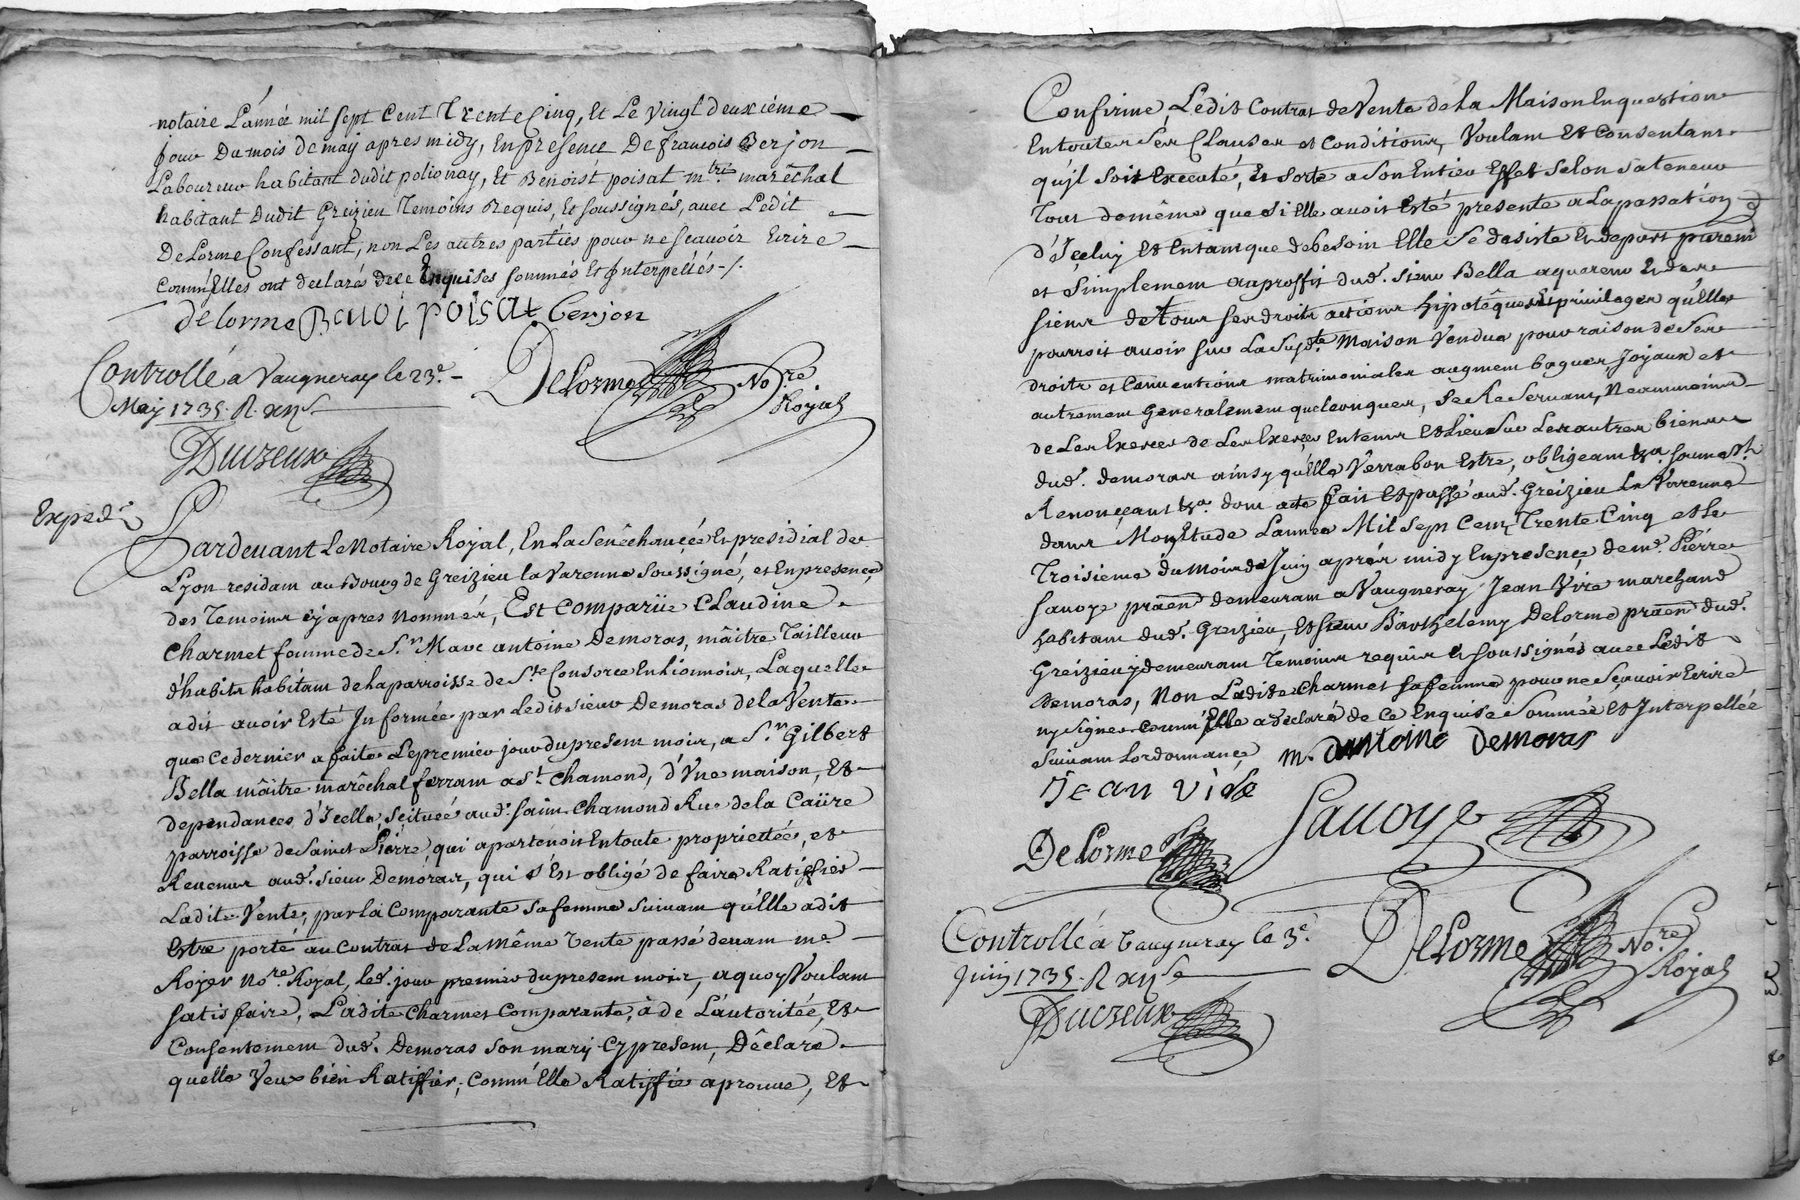 notaire L'année mil sept Cent Trente Cinq, et Le Vingt deuxième
jour Du mois de maÿ apres midy, En presence De francois Berjon
Laboureur habitant dudit polionay, Et Benoist poisat mtre maréchal
habitant Dudit Greizieu Temoins Requis, Et soussignés, avec Ledit
De Lorme Confessant, non Les autres parties pour ne scavoir Ecrire
comm'Elles ont declarés de ce Enquises sommés Et Interpellés ./.
delorme Benoi poisat berjon
Controllé a Vaugneray le 23e.
Maÿ 1735. R. xij s.
DeLorme No.re
Royal
Ducreux
Exped.é
Pardevant Le Notaire Royal, En La Senêchaucée Et presidial de
Lyon residam au Bourg de Greizieu la Varenne soussigné, et En presence
des Temoins cy apres nommés, Est Comparüe Claudine
Charmet femme de S.r Marc antoine Demoras, mâitre Tailleur
d'habits habitam de la parroisse de S.te Consorce En Lionnois, Laquelle
a dit avoir Esté Informée par Ledit sieur Demoras de la Vente
que Ce dernier a faite Le premier jour du presem mois, a S.r Gilbert
Bella mâitre marêchal ferram a S.t Chamond, d'Une maison, Et
dependances d'Icelle, scituée aud. saint Chamond Rue de la Caüre
parroisse de Saint Pierre, qui apartenoit En toute proprietteé, et
Revenus aud. sieur Demoras, qui s'Est obligé de faire Ratiffier
Ladite Vente, par la Comparante sa femme suivam qu'Elle a dit
Estre porté au Contrat de La même Vente passé devam me.
Royer No.re Royal, led. jour premier du presem mois, a quoy Voulam
satisfaire, Ladite Charmet Comparante, à de L'autoritée, Et
Consentemem dud. Demoras son marÿ Cy presem, Dêclare
quelle Veux bien Ratiffier, Comm'Elle Ratiffie aprouve, Et
Confirme, Ledit Contrat de Vente de La Maison En question
En toutes Ses Clauses et Conditions, Voulam Et Consentam
qu'jl soit Executé, Et sorte a son Entier Effet selon sa teneur
Tout de même que si Elle avoit Esté presente a La passation
d'Iceluy Et En tam que de besoin Elle se desiste Et depart purem
et simplemem au proffit dud. sieur Bella aquereur Et des
siens de tous ses droits actions hipotêques Et privileges qu'Elle
pourroit avoir sur La susd.te Maison Vendue pour raison de Ses
droits et Conventions matrimoniales augmem bagues, Joyaux et
autremem Generalemem quelconques, se Reservam, Neammoins
de Les Exercer de Les Exercer En tems Et Lieu Sur Les autres biens
dud. demoras ainsy qu'Elle Verra bon Estre, obligeam &a. soum.on
Renonçant &a. dont acte fait Et passé aud. Greizieu La Varenne
dans Mon Etude L'année Mil Sept Cent Trente Cinq et Le
Troisieme du mois de Juin aprés midy En presence de me. Pierre
Savoye praen demeuram a Vaugneray Jean Vire marchand
habitam dud. Greizieu, Et sieur Barthelemy Delorme praen dud.
Greizieu y demeuram Temoins requis Et soussignés avec Ledit
Demoras, Non Ladite Charmet sa femme pour ne Sçavoir Ecrire
ny signer comm'Elle a declaré de Ce Enquise Sommée Et Interpellée
suivam Lordonnance m. antoine Demoras
Jean vire
Savoye
DeLorme
Controllé a Vaugneray le 3e.
Juin 1735. R xij s.
DeLorme No.re
Royal
Ducreux